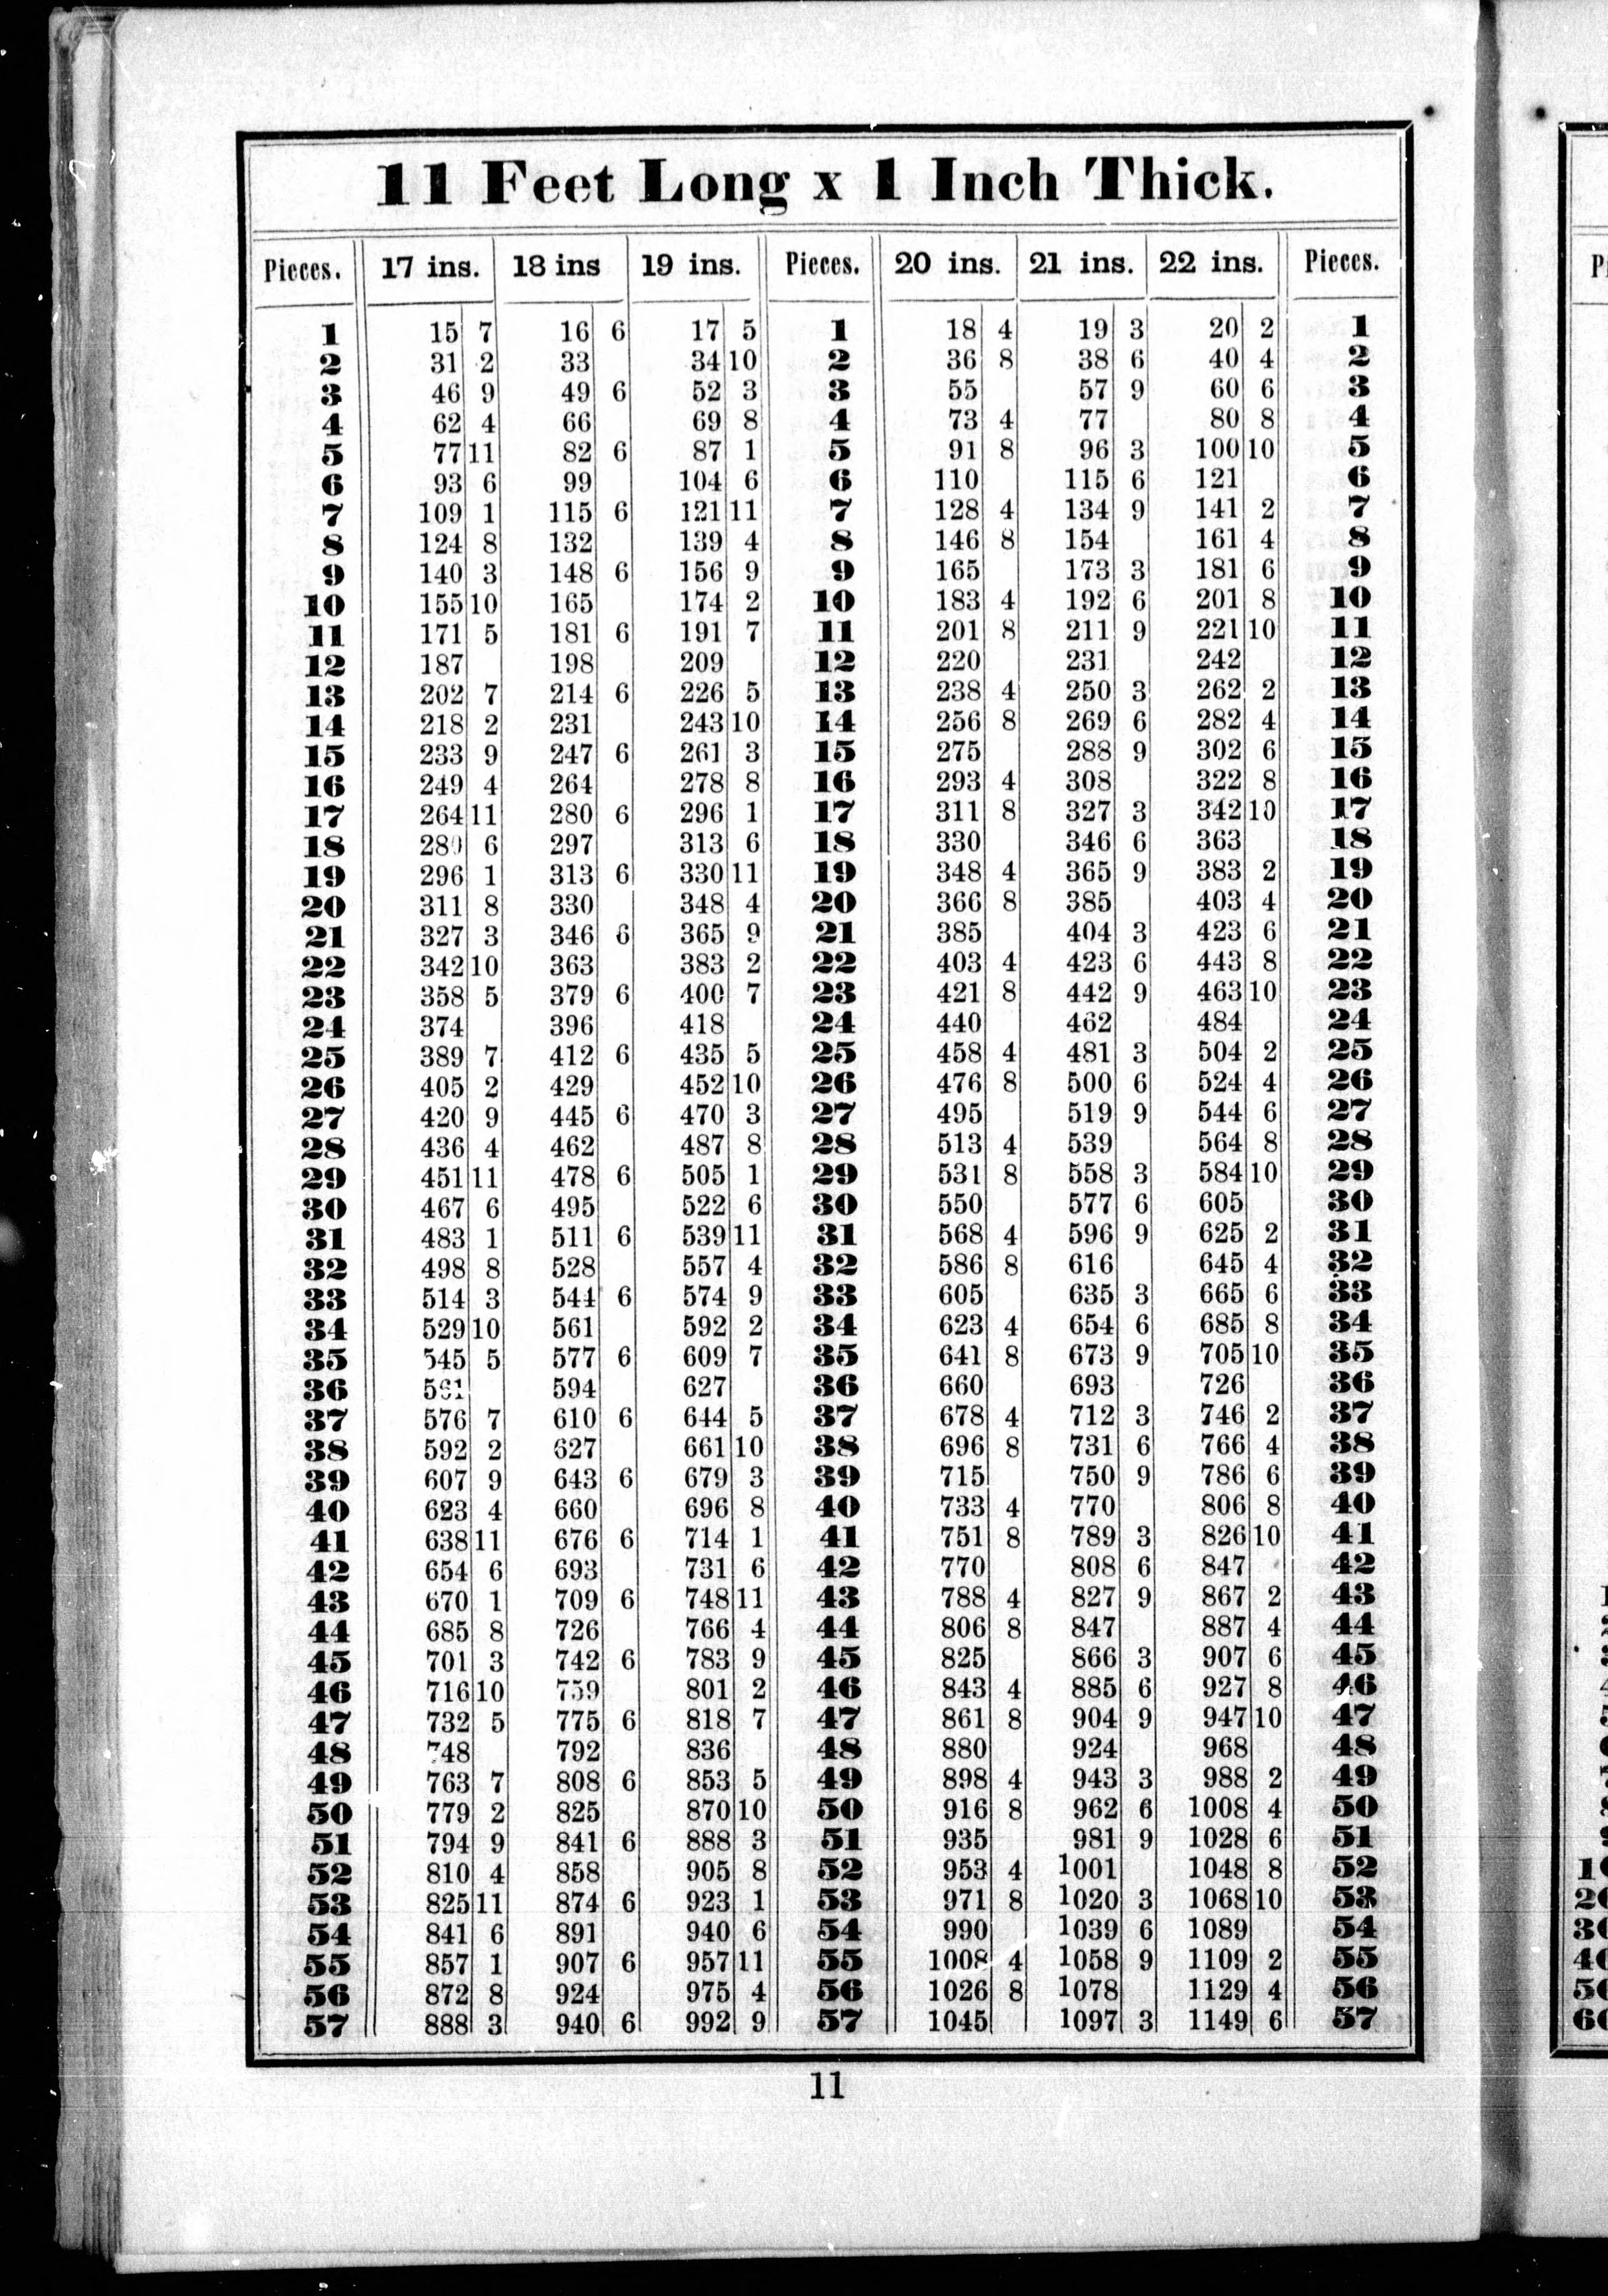 11 Feet Long x 1 Inch Thick.
Pieces. 17 ins. 18 ins 19 ins. Pieces. 20 ins. 21 ins. 22 ins. Pieces.
1 15 7 16 6 17 5 1 18 4 19 3 20 2 1
2 31 2 33 34 10 2 36 8 38 6 40 4 2
3 46 9 49 6 52 3 3 55 57 9 60 6 3
4 62 4 66 69 8 4 73 4 77 80 8 4
5 77 11 82 6 87 1 5 91 8 96 3 100 10 5
6 93 6 99 104 6 6 110 115 6 121 6
7 109 1 115 6 121 11 7 128 4 134 9 141 2 7
8 124 8 132 139 4 8 146 8 154 161 4 8
9 140 3 148 6 156 9 9 165 173 3 181 6 9
10 155 10 165 174 2 10 183 4 192 6 201 8 10
11 171 5 181 6 191 7 11 201 8 211 9 221 10 11
12 187 198 209 12 220 231 242 12
13 202 7 214 6 226 5 13 238 4 250 3 262 2 13
14 218 2 231 243 10 14 256 8 269 6 282 4 14
15 233 9 247 6 261 3 15 275 288 9 302 6 15
16 249 4 264 278 8 16 293 4 308 322 8 16
17 264 11 280 6 296 1 17 311 8 327 3 342 10 17
18 280 6 297 313 6 18 330 346 6 363 18
19 296 1 313 6 330 11 19 348 4 365 9 383 2 19
20 311 8 330 348 4 20 366 8 385 403 4 20
21 327 3 346 6 365 9 21 385 404 3 423 6 21
22 342 10 363 383 2 22 403 4 423 6 443 8 22
23 358 5 379 6 400 7 23 421 8 442 9 463 10 23
24 374 396 418 24 440 462 484 24
25 389 7 412 6 435 5 25 458 4 481 3 504 2 25
26 405 2 429 452 10 26 476 8 500 6 524 4 26
27 420 9 445 6 470 3 27 495 519 9 544 6 27
28 436 4 462 487 8 28 513 4 539 564 8 28
29 451 11 478 6 505 1 29 531 8 558 3 584 10 29
30 467 6 495 522 6 30 550 577 6 605 30
31 483 1 511 6 539 11 31 568 4 596 9 625 2 31
32 498 8 528 557 4 32 586 8 616 645 4 32
33 514 3 544 6 574 9 33 605 635 3 665 6 33
34 529 10 561 592 2 34 623 4 654 6 685 8 34
35 545 5 577 6 609 7 35 641 8 673 9 705 10 35
36 561 594 627 36 660 693 726 36
37 576 7 610 6 644 5 37 678 4 712 3 746 2 37
38 592 2 627 661 10 38 696 8 731 6 766 4 38
39 607 9 643 6 679 3 39 715 750 9 786 6 39
40 623 4 660 696 8 40 733 4 770 806 8 40
41 638 11 676 6 714 1 41 751 8 789 3 826 10 41
42 654 6 693 731 6 42 770 808 6 847 42
43 670 1 709 6 748 11 43 788 4 827 9 867 2 43
44 685 8 726 766 4 44 806 8 847 887 4 44
45 701 3 742 6 783 9 45 825 866 3 907 6 45
46 716 10 759 801 2 46 843 4 885 6 927 8 46
47 732 5 775 6 818 7 47 861 8 904 9 947 10 47
48 748 792 836 48 880 924 968 48
49 763 7 808 6 853 5 49 898 4 943 3 988 2 49
50 779 2 825 870 10 50 916 8 962 6 1008 4 50
51 794 9 841 6 888 3 51 935 981 9 1028 6 51
52 810 4 858 905 8 52 953 4 1001 1048 8 52
53 825 11 874 6 923 1 53 971 8 1020 3 1068 10 53
54 841 6 891 940 6 54 990 1039 6 1089 54
55 857 1 907 6 957 11 55 1008 4 1058 9 1109 2 55
56 872 8 924 975 4 56 1026 8 1078 1129 4 56
57 888 3 940 6 992 9 57 1045 1097 3 1149 6 57
11